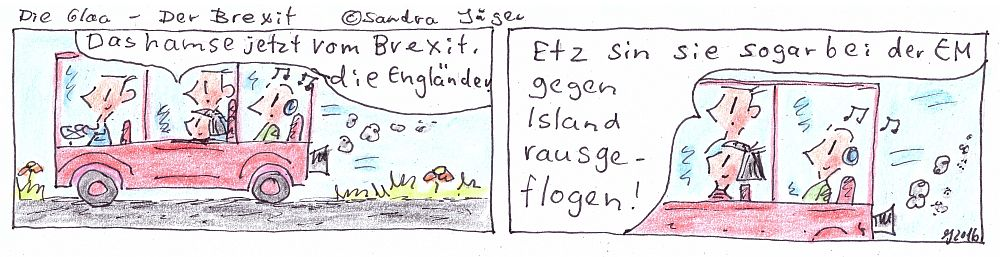 Die Glaa - Der Brexit ©Sandra Jäger
Das hamse jetzt vom Brexit,
die Engländer
Etz sin sie sogar bei der EM
gegen
Island
rausge-
flogen!
SJ2016